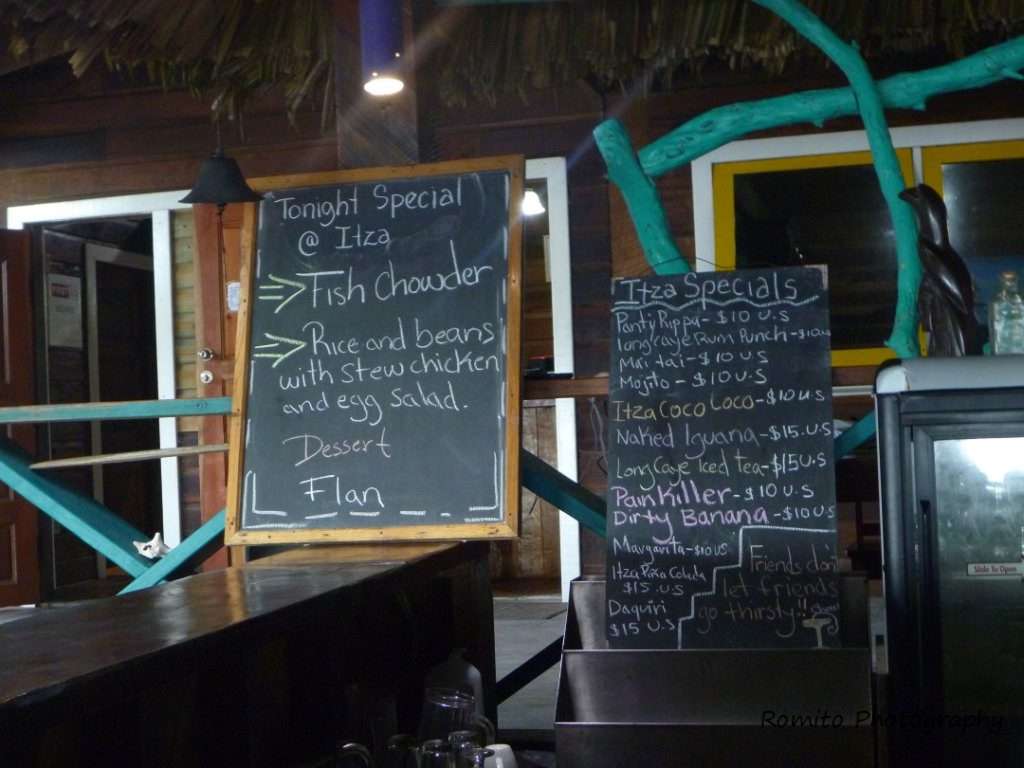 Tonight Special
@ Itza
Fish Chowder
Rice and beans
with stew chicken
and egg salad.
Dessert
Flan
Itza Specials
Panty Rippa - $10 U.S
Long Caye Rum Punch - $10 U.S
Mai tai - $10 U.S
Mojito - $10 U.S
Itza Coco Loco - $10 U.S
Naked Iguana - $15. U.S
Long Caye Iced Tea - $15 U.S
Pain Killer - $10 U.S
Dirty Banana - $10 U.S
Margarita - $10 US
Itza Pina Colada
$15 .U.S
Daquiri
$15 U.S
Friends don't
let friends
go thirsty!!
Slide To Open
Romito Photography